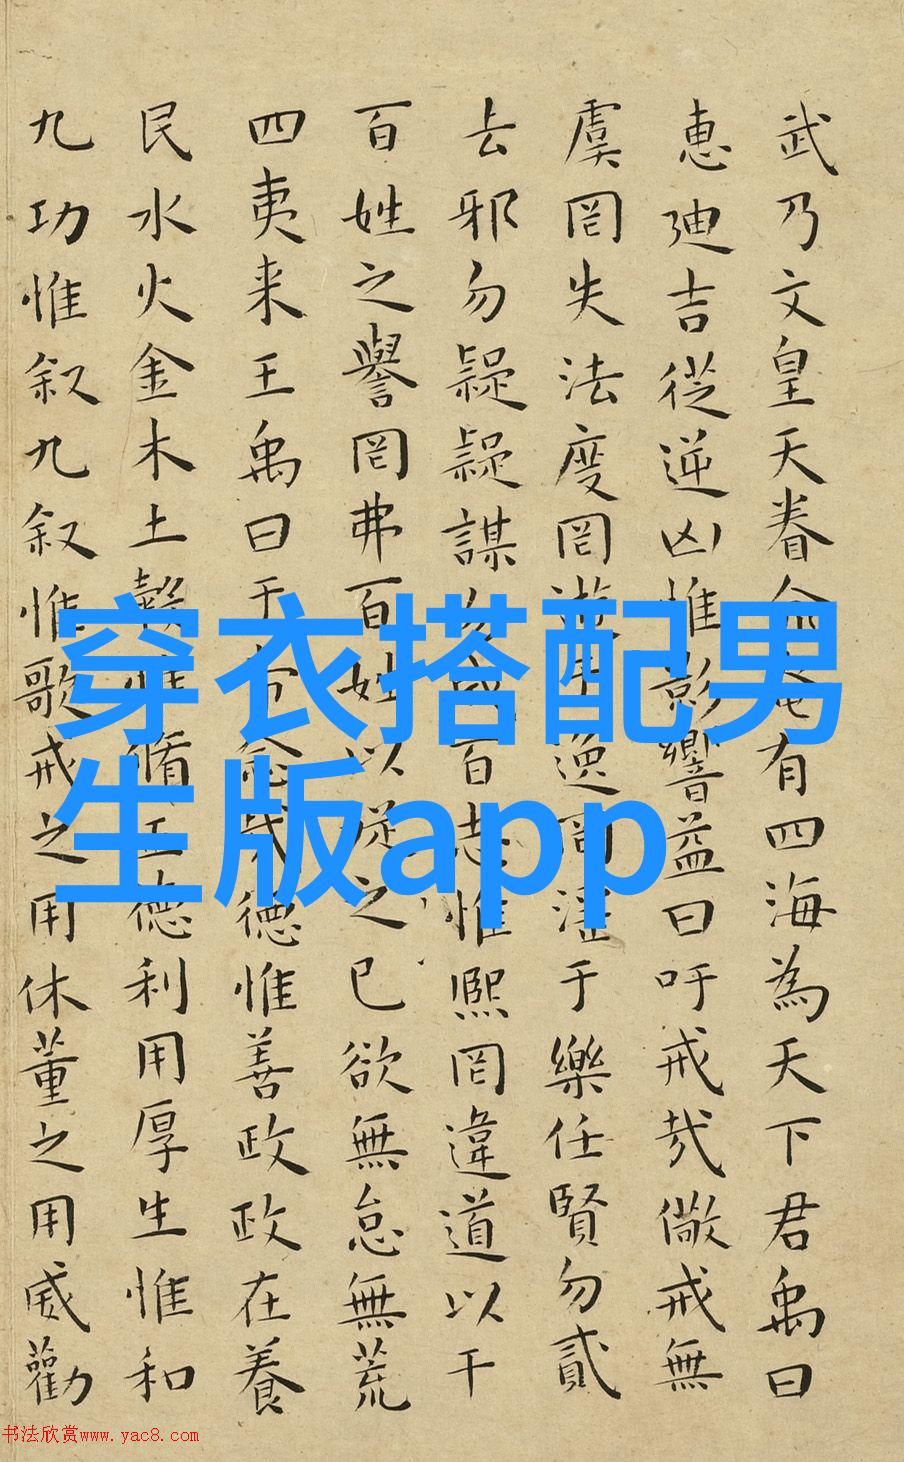 武乃文皇天眷命奄有四海為天下君禹曰
惠廸吉從逆凶惟影響益曰吁戒哉儆戒無
虞罔失法度罔遊于逸罔淫于樂任賢勿貳
去邪勿疑疑謀勿成百志惟熙罔違道以干
百姓之譽罔弗百姓以從之已欲無怠無荒
四夷来王禹曰于帝念哉德惟善政政在養
民水火金木土穀惟脩正德利用厚生惟和
九功惟叙九叙惟歌戒之用休董之用威勸
穿衣搭配男
生版app
书法欣赏www.yac8.com